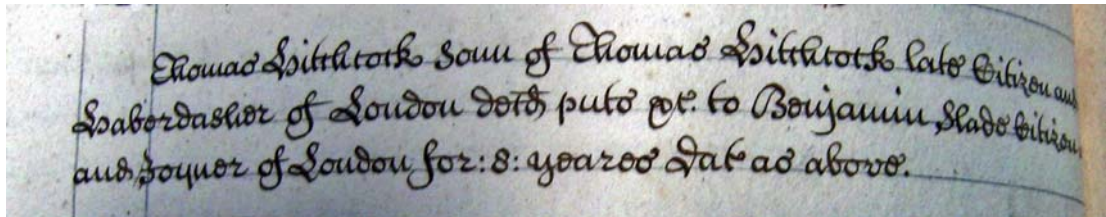 Thomas Hitchcock Sonn of Thomas Hitchcock late Citizen and
Haberdasher of London decd. puts &c. to Benjamin Slade Citizen
and Joyner of London for: 8: yeares Dat as above.